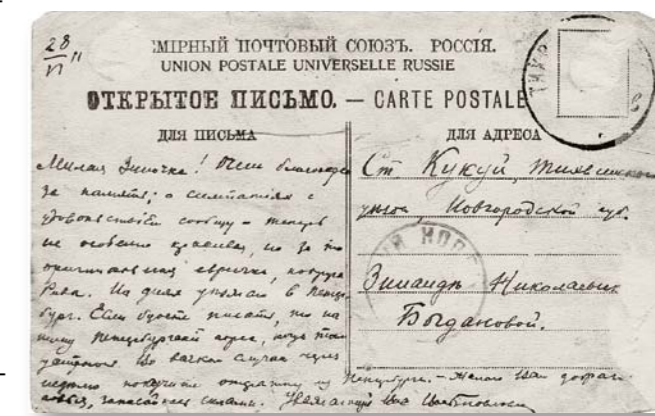 28
VI 11
МІРНЫЙ ПОЧТОВЫЙ СОЮЗЪ. РОССІЯ.
UNION POSTALE UNIVERSELLE RUSSIE
ОТКРЫТОЕ ПИСЬМО. — CARTE POSTALE
ДЛЯ ПИСЬМА
ДЛЯ АДРЕСА
Милая Зиночка! Очень благодарю
за память; о симпатіях с
удовольствіем сообщу – теперь
не особенно красивая, но за то
оригинальная евреичка, подруга
Рива. На днях уезжаю в Петер
бург. Если будете писать, то на
мой петербургскій адрес, когда там
устроюсь Во всяком случае через
неделю получите открытку из Петербурга. – Желаю Вам
Уважающій Вас
Ст Кукуй, Тихвинскаго
уезда, Новгородской губ.
Зинаиде Николаевне
Богдановой.